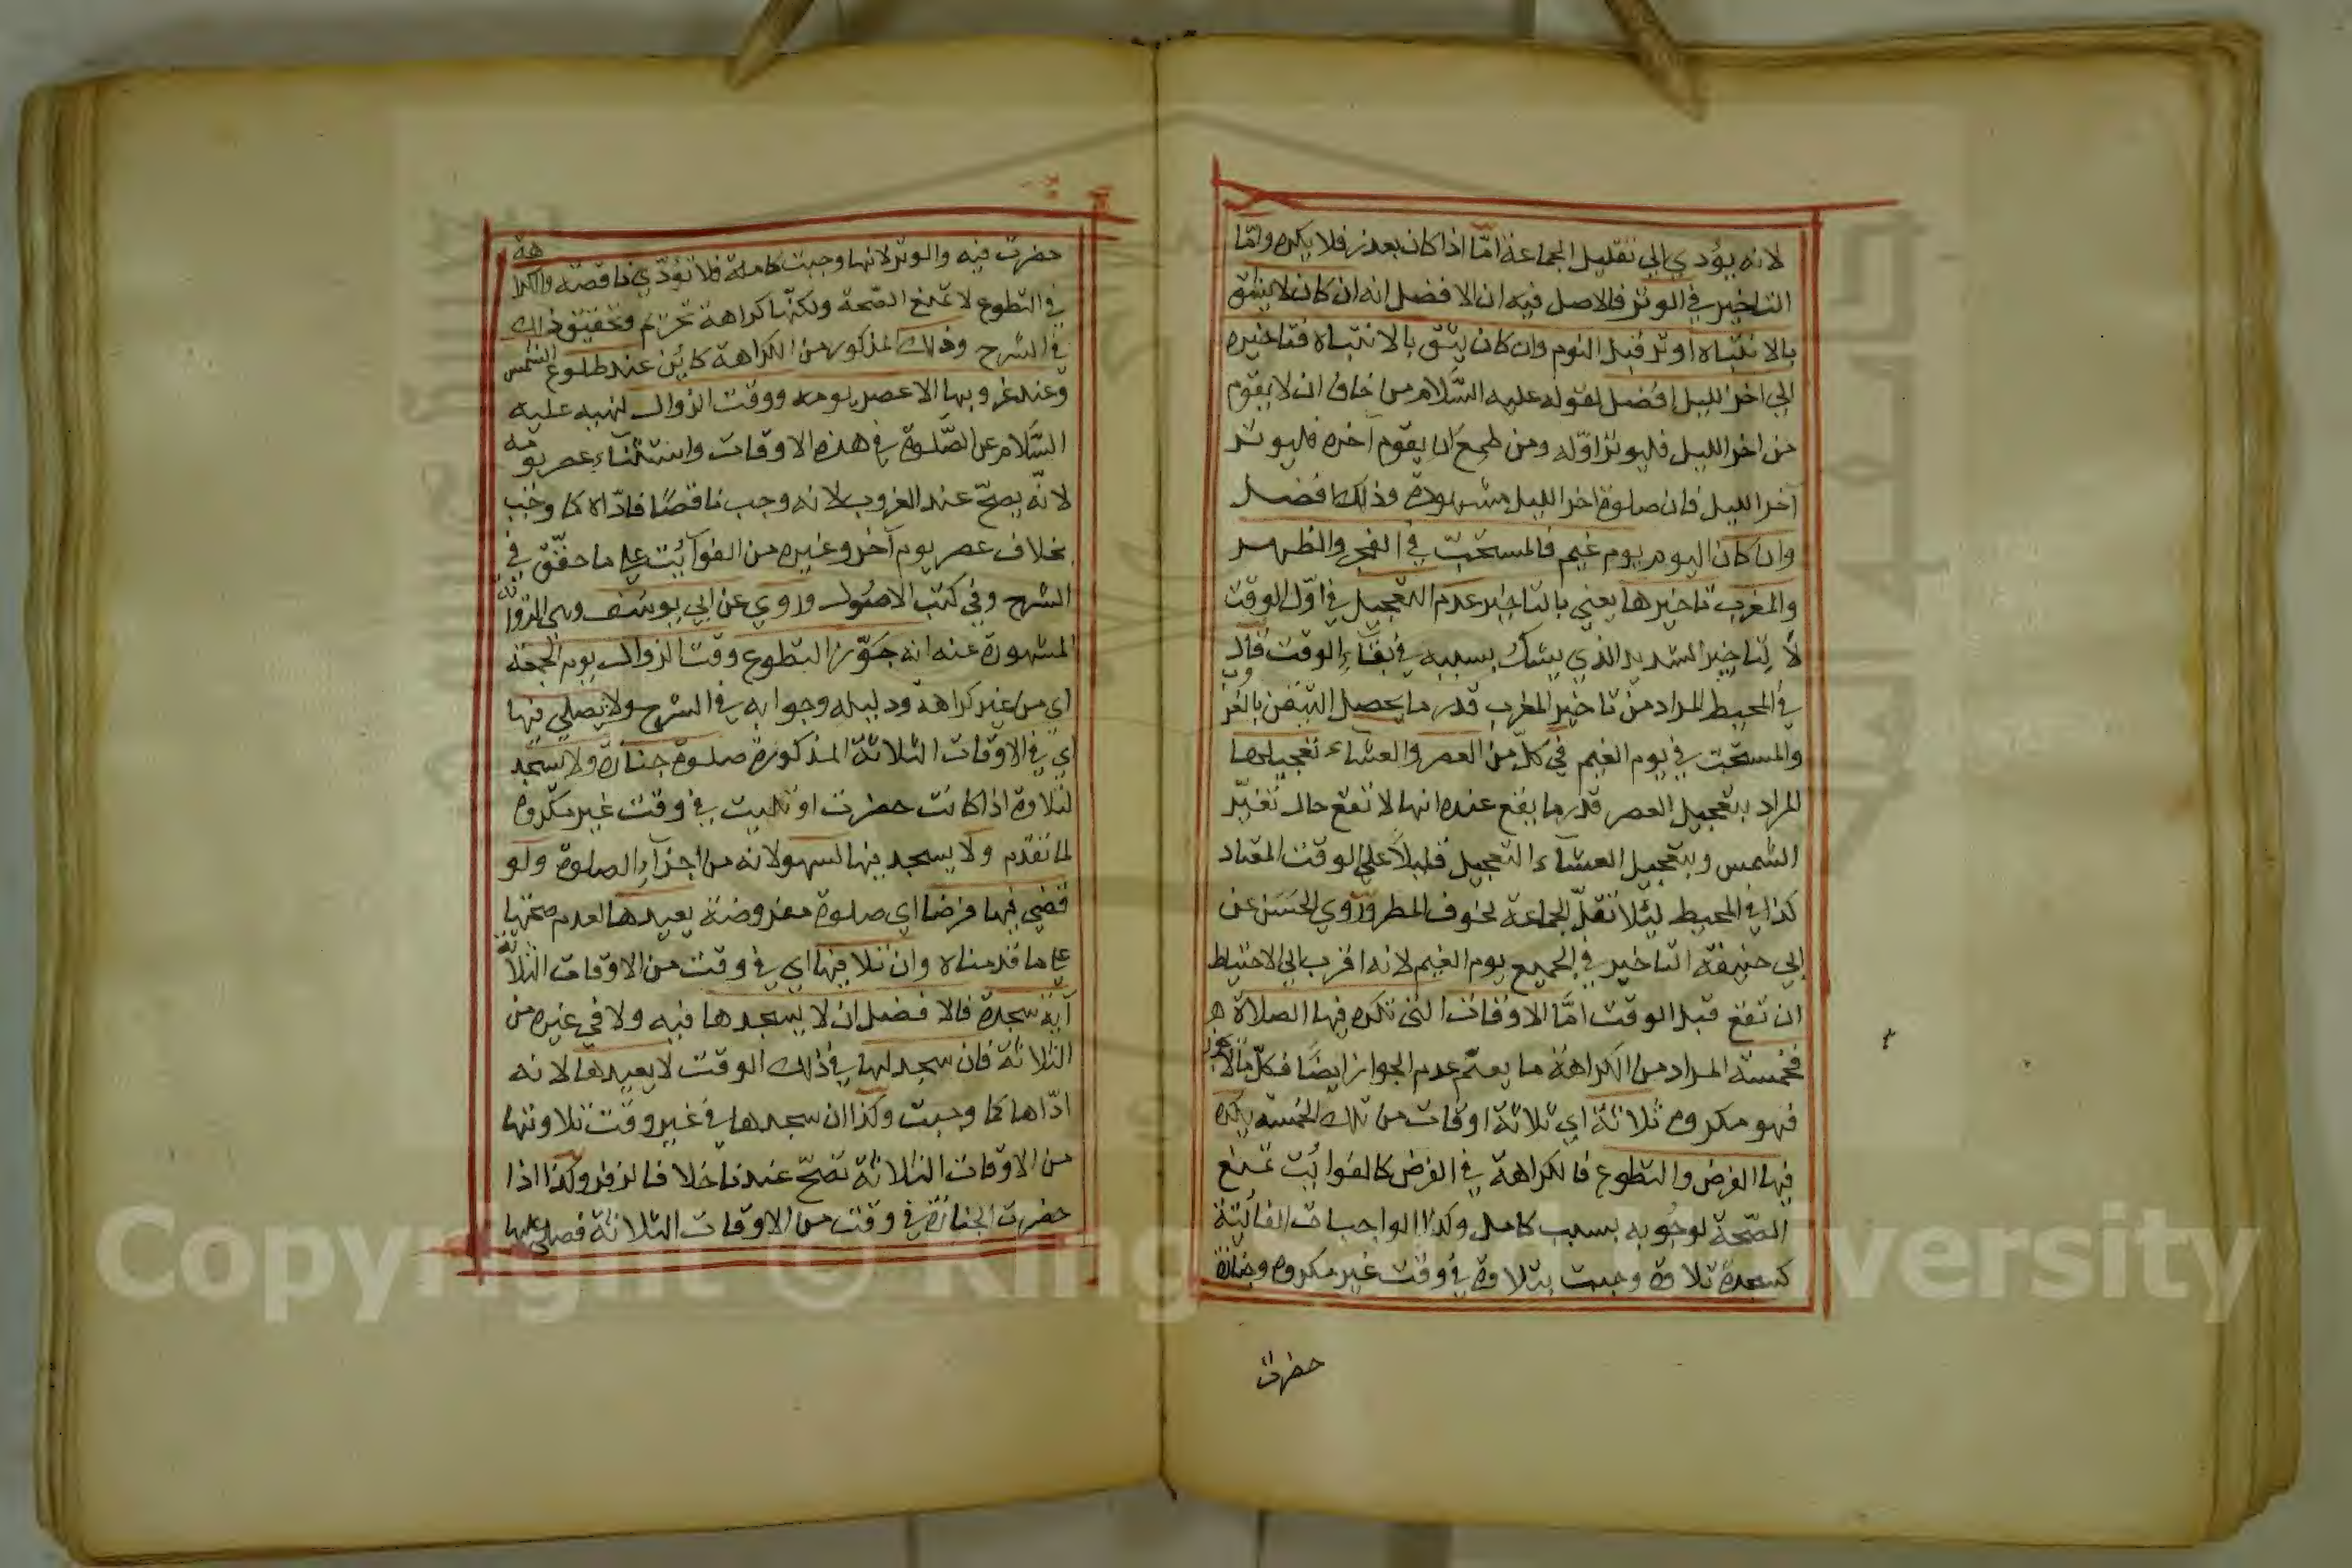 لانه يؤدي الى تقليل الجماعة امّا اذا كان بعذر فلا يكره وامّا
التاخير في الوتر فالاصل فيه ان الافضل انه ان كان لا يثق
بالانتباه اوتر قبل النوم وان كان يثق بالانتباه فتاخيره
الى اخر الليل افضل لقوله عليه السّلام من خاف ان لا يقوم
من اخر الليل فليوتر اوّله ومن طمع ان يقوم آخره فليوتر
آخر الليل فان صلوة اخر الليل مشهودة وذلك افضل
وان كان اليوم يوم غيم فالمستحبّ في الفجر والظهر
والمغرب تاخيرها يعني بالتاخير عدم التعجيل في اوّل الوقت
لا التاخير الشديد الذي يشك بسببه في بقاء الوقت قال
في المحيط المراد من تاخير المغرب قدر ما يحصل التيقن بالغروب
والمستحبّ في يوم الغيم في كلّ من العصر والعشاء تعجيلها
المراد بتعجيل العصر قدر ما يقع عنده انها لا تقع حال تغيّر
الشمس وبتعجيل العشاء التعجيل قليلاً على الوقت المعتاد
كذا في المحيط لئلا تقلّ الجماعة لخوف المطر وروي الحَسَن عن
ابي حنيفة التاخير في الجميع يوم الغيم لانه اقرب الى الاحتياط
ان تقع قبل الوقت امّا الاوقات التي تكره فيها الصلاة
فخمسة المراد من الكراهة ما يعمّ عدم الجواز ايضًا فكلّ ما لا يجوز
فهو مكروه ثلاثة اي ثلاثة اوقات من تلك الخمسة يكره
فيها الفرض والتطوع فالكراهة في الفرض كالفوائت تمنع
الصّحة لوجوبه بسبب كامل وكذا الواجبات الفائتة
كسجدة تلاوة وجبت بتلاوة في وقت غير مكروه وجنازة
حضرت
حضرت فيه والوتر لانها وجبت كاملة فلا تؤدّي ناقصة والكراهة
في التطوع لا تمنع الصّحة ولكنّها كراهة تحريم وتحقيق ذلك
في الشرح وذلك المذكور من الكراهة كائن عند طلوع الشمس
وعند غروبها الا عصر يومه ووقت الزوال لنهيه عليه
السّلام عن الصّلوة في هذه الاوقات واستثناء عصر يومه
لانّه يصحّ عند الغروب لانه وجب ناقصًا فادّاه كما وجب
بخلاف عصر يوم آخر وغيره من الفوائت على ما حقّق في
الشرح وفي كتب الاصول وروي عن ابي يوسف وهي الرواية
المشهورة عنه انه جوّز التطوع وقت الزوال يوم الجمعة
اي من غير كراهة ودليله وجوابه في الشرح ولا يصلي فيها
اي في الاوقات الثلاثة المذكورة صلوة جنازة ولا يسجد
لتلاوة اذا كانت حضرت او تليت في وقت غير مكروه
لما تقدّم ولا يسجد فيها لسهو لانه من اجزاء الصلوة ولو
قضى فيها فرضا اي صلوة مفروضة يعيدها لعدم صحتها
على ما قدمناه وان تلا فيها اي في وقت من الاوقات الثلاثة
آية سجدة فالافضل ان لا يسجدها فيه ولا في غيره من
الثلاثة فان سجد لها في ذلك الوقت لا يعيدها لانه
ادّاها كما وجبت وكذا ان سجدها في غير وقت تلاوتها
من الاوقات الثلاثة تصحّ عندنا خلافا لزفر وكذا اذا
حضرت الجنازة في وقت من الاوقات الثلاثة فصلى عليها
Copyright © King University